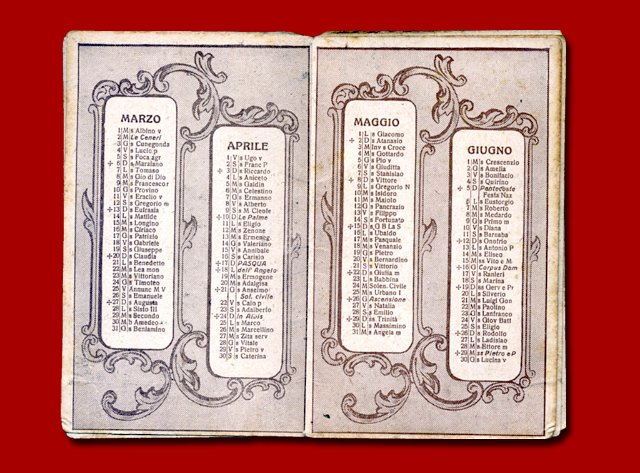 MARZO
1 M s Albino v
2 M Le Ceneri
3 G s Cunegonda
4 V s Lucio p
5 S s Foca agr
+ 6 D s Marziano
7 L s Tomaso
8 M s Gio di Dio
9 M s Francesco r
10 G s Provino
11 V s Eraclio v
12 S s Gregorio m
+ 13 D s Eufrasia
14 L s Matilde
15 M s Longino
16 M s Ciriaco
17 G s Patrizio
18 V s Gabriele
19 S s Giuseppe
+ 20 D s Claudia
21 L s Benedetto
22 M s Lea mon
23 M s Vittoriano
24 G s Timoteo
25 V Annunc M V
26 S s Emanuele
+ 27 D s Augusta
28 L s Sisto III
29 M s Secondo
30 M b Amedeo
31 G s Beniamino
APRILE
1 V s Ugo v
2 S s Franc P
+ 3 D s Riccardo
4 L s Aniceto
5 M s Galdin
6 M s Celestino
7 G s Ermanno
8 V s Alberto
9 S s M Cleofe
+ 10 D Le Palme
11 L s Eligio
12 M s Zenone
13 M s Ermeneg.
14 G s Valeriano
15 V s Annibale
16 S s Carisio
+ 17 D PASQUA
+ 18 L dell' Angelo
19 M s Ermogene
20 M s Adalgisa
+ 21 G s Anselmo
Sol. civile
22 V s Caio p
23 S s Adalberto
+ 24 D In Albis
25 L s Marco
26 M s Marcellino
27 M s Zita serv
28 G s Vitale
29 V s Pietro v
30 S s Caterina
MAGGIO
1 L s Giacomo
+ 2 D s Atanasio
3 M Inv s Croce
4 M s Gottardo
5 G s Pio v
6 V s Giuditta
7 S s Stanislao
+ 8 D s Vittore
9 L s Gregorio N
10 M s Isidoro
11 M s Maiolo
12 G s Pancrazio
13 V s Filippo
14 S s Fortunato
+ 15 D s G B La S
16 L s Ubaldo
17 M s Pasquale
18 M s Venanzio
19 G s Pietro
20 V s Bernardino
21 S s Vittorio
+ 22 D s Giulia m
23 L s Babbina
24 M Solen. Civile
25 M s Urbano I
+ 26 G Ascensione
27 V s Natalia
28 S s Emilio
+ 29 D ss Trinità
30 L s Massimino
31 M s Angela m
GIUGNO
1 M s Crescenzio
2 G s Amelia
3 V s Bonifacio
4 S s Quirino
+ 5 D Pentecoste
Festa Naz
6 L s Eustorgio
7 M s Roberto
8 M s Medardo
9 G s Primo m
10 V s Diana
11 S s Barnaba
+ 12 D s Onofrio
13 L s Antonio P
14 M s Eliseo
15 M ss Vito e M
+ 16 G Corpus Dom
17 V s Ranieri
18 S s Marina
+ 19 D ss Gerv e Pr
20 L s Silverio
21 M s Luigi Gon
22 M s Paolino
23 G s Lanfranco
24 V s Giov Batt
25 S s Eligio
+ 26 D s Rodolfo
27 L s Ladislao
28 M s Ettore m
+ 29 M ss Pietro e P
30 G s Lucina v